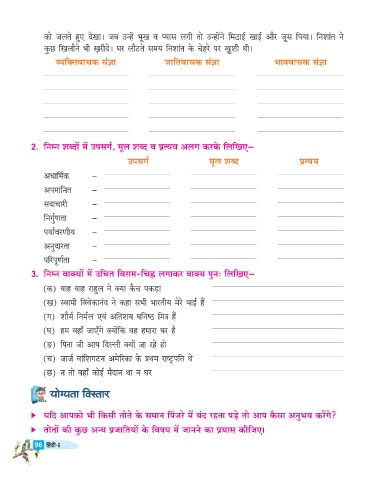 को जलते हुए देखा। जब उन्हें भूख व प्यास लगी तो उन्होंने मिठाई खाई और जूस पिया। निशांत ने
कुछ खिलौने भी खरीदे। घर लौटते समय निशांत के चेहरे पर खुशी थी।
व्यक्तिवाचक संज्ञा जातिवाचक संज्ञा भाववाचक संज्ञा
2. निम्न शब्दों में उपसर्ग, मूल शब्द व प्रत्यय अलग करके लिखिए–
उपसर्ग मूल शब्द प्रत्यय
अधार्मिक –
अपमानित –
सदाचारी –
निर्गुणता –
पर्यावरणीय –
अनुदारता –
परिपूर्णता –
3. निम्न वाक्यों में उचित विराम-चिह्न लगाकर वाक्य पुनः लिखिए–
(क) वाह वाह राहुल ने क्या कैच पकड़ा
(ख) स्वामी विवेकानंद ने कहा सभी भारतीय मेरे भाई हैं
(ग) शौर्य निर्मल एवं अतिशय घनिष्ठ मित्र हैं
(घ) हम वहाँ जाएँगे क्योंकि वह हमारा घर है
(ङ) पिता जी आप दिल्ली क्यों जा रहे हो
(च) जार्ज वाशिंगटन अमेरिका के प्रथम राष्ट्रपति थे
(छ) न तो वहाँ कोई मैदान था न घर
योग्यता विस्तार
यदि आपको भी किसी तोते के समान पिंजरे में बंद रहना पड़े तो आप कैसा अनुभव करेंगे?
तोतों की कुछ अन्य प्रजातियों के विषय में जानने का प्रयास कीजिए।
96 हिंदी-6